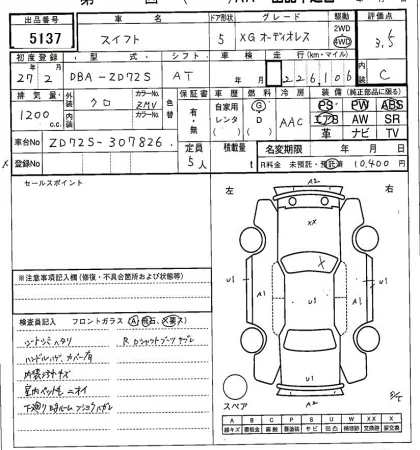 出品番号 車名 ドア形状 グレード 駆動 評価点
5137 スイフト 5 XG オーディオレス 2WD 4WD 3.5
初度登録 型式 シフト 車検 走行(km・マイル) 内装
27年2月 DBA-ZD72S AT 226,106 C
排気量 外装 カラーNo. 色替 保証書 車歴 燃料 冷房 装備(純正部品に限る)
1200 c.c. クロ ZMV 有・無 自家用 レンタ G D AAC PS PW ABS
内装 カラーNo. エアB AW SR
革 ナビ TV
車台No ZD72S-307826. 定員 積載量 名変期限 年 月 日
登録No 5人 t R料金 未預託・預託済 10,400円
セールスポイント 左 右
A2
XX
X
U1 A1 U1 A1 U1
※注意事項記入欄(修復・不具合箇所および状態等)
検査員記入 フロントガラス A 飛石 X要X
シートシミ ヘタリ R ロワシャフトブーツキブレ
ハンドルハゲ カバー有
内装汚れキズ
室内ペット毛 ニオイ
U1
スペア A2
A B C P S U W X XX X
線キズ 要板金 腐蝕 要塗装 サビ 凹凸 補修跡 交換跡 要交換